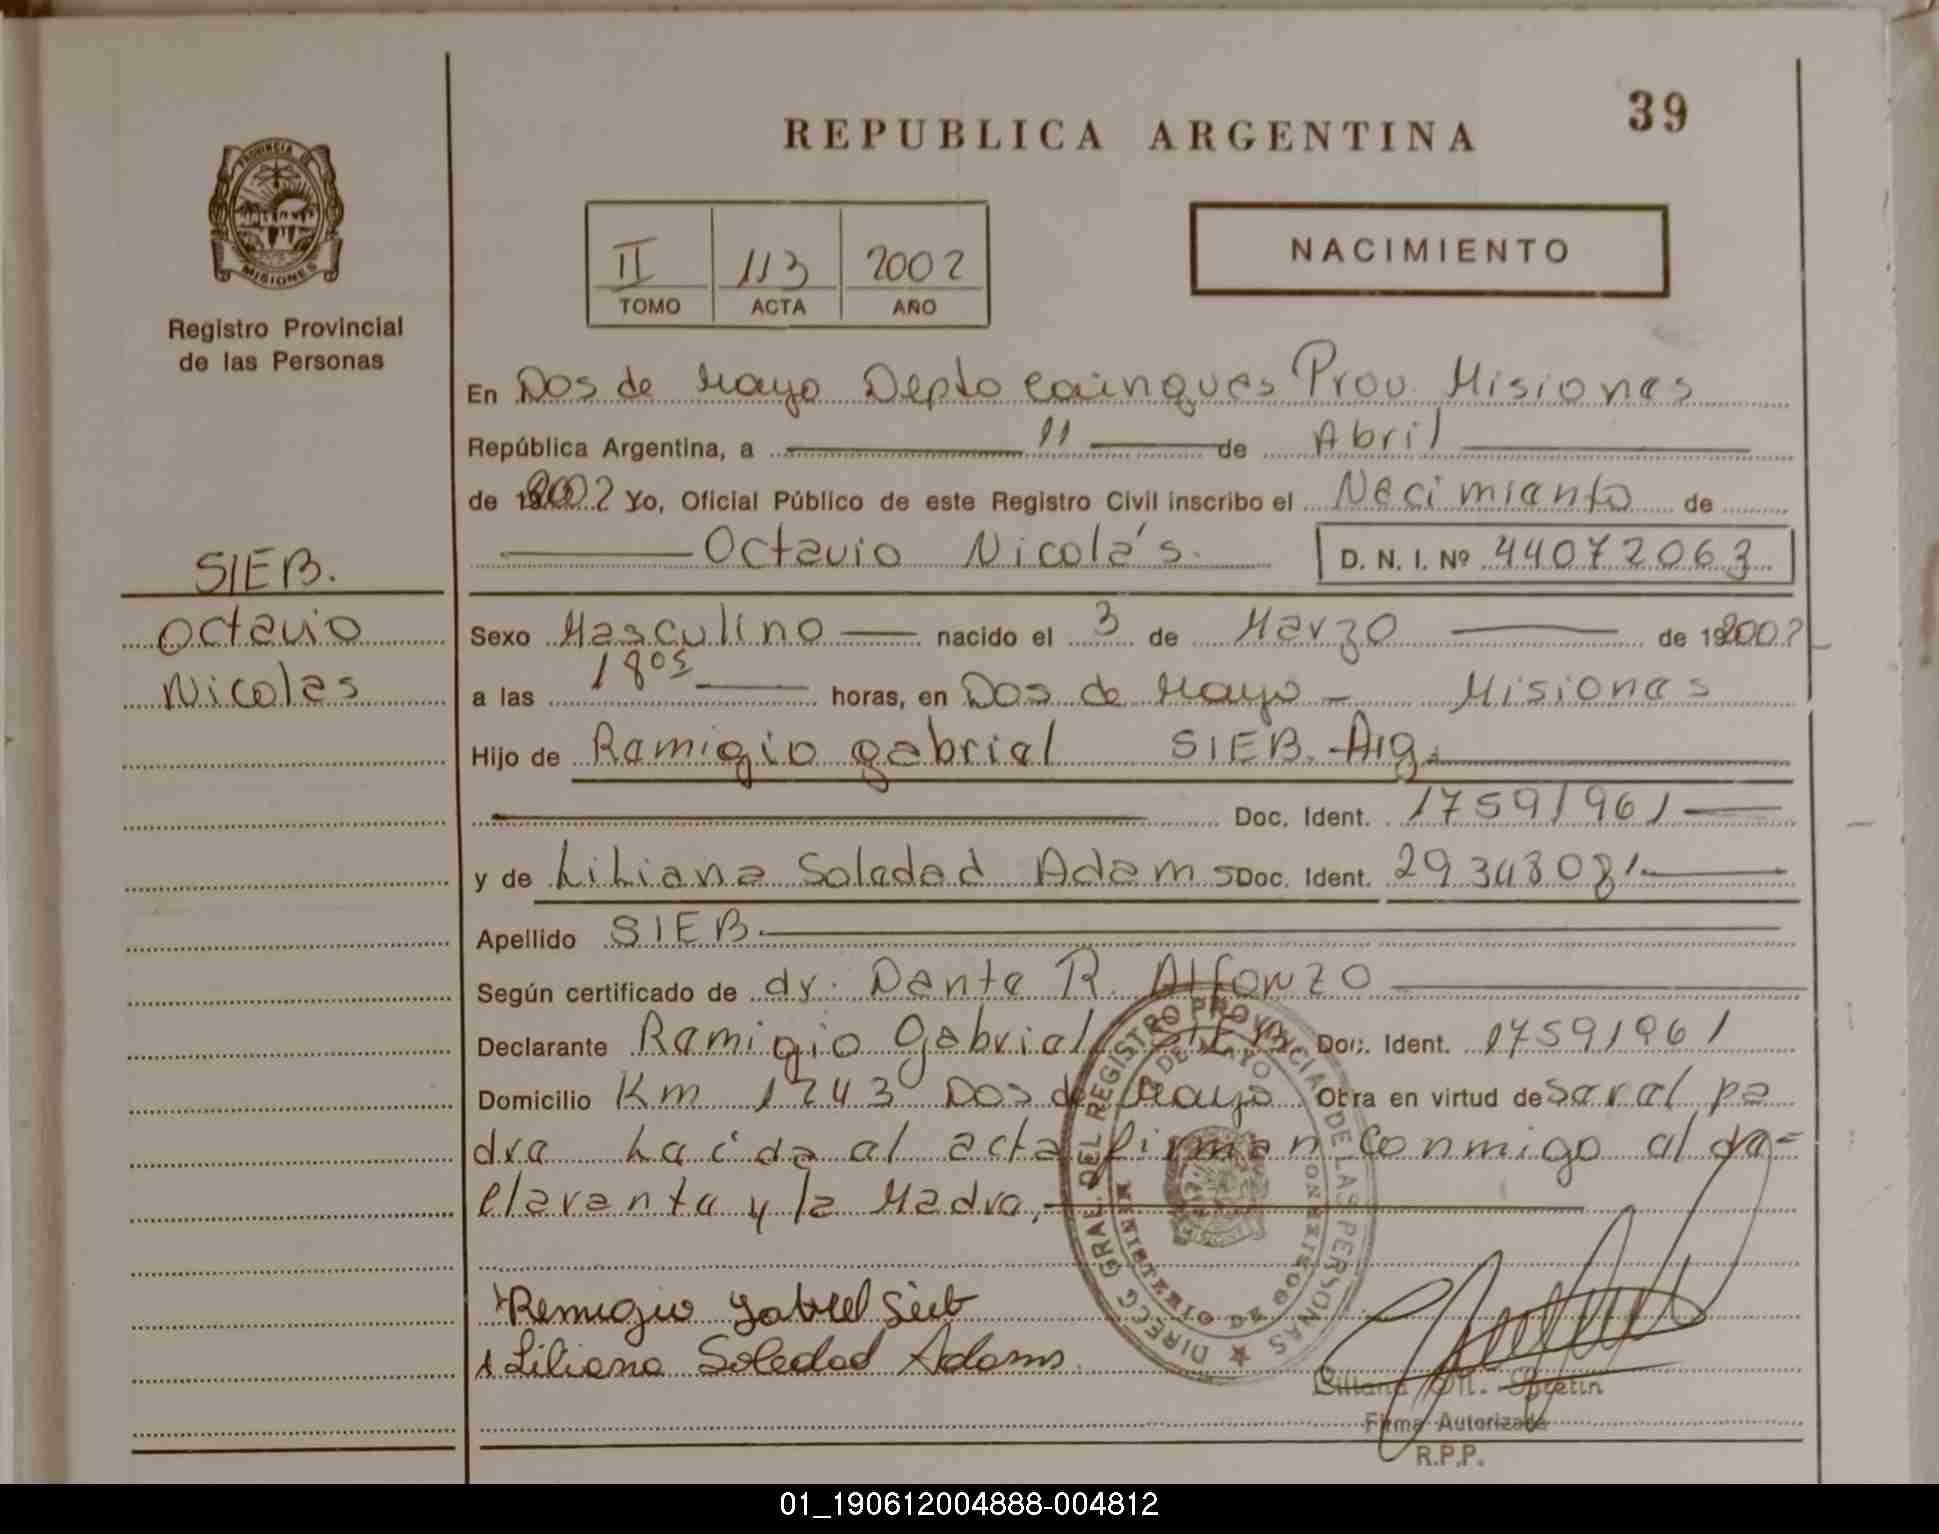 39
REPUBLICA ARGENTINA
PROVINCIA DE
MISIONES
Registro Provincial
de las Personas
II 113 2002
TOMO ACTA AÑO
NACIMIENTO
En Dos de Mayo Depto Cainguas Prov. Misiones
República Argentina, a 11 de Abril
de 2002 Yo, Oficial Público de este Registro Civil inscribo el Nacimiento de
Octavio Nicolás. D. N. I. Nº 44072063
SIEB.
Octavio
Nicolas
Sexo Masculino nacido el 3 de Marzo de 2002
a las 18 05 horas, en Dos de Mayo - Misiones
Hijo de Remigio gabriel SIEB. - Arg.
Doc. Ident. 17591961
y de Liliana Soledad Adams Doc. Ident. 29348081
Apellido SIEB.
Según certificado de dr. Dante R. Alfonzo
Declarante Remigio Gabriel SIEB Doc. Ident. 17591961
Domicilio Km 1243 Dos de Mayo Obra en virtud de Ser el pa
dre Leida el acta firman conmigo el de=
clarante y la Madre.
DIRECC GRAL. DEL REGISTRO PROVINCIAL DE LAS PERSONAS
2 DE MAYO
MINISTERIO DE GOBIERNO
Remigio Gabriel Sieb
Liliana Soledad Adams
Firma Autorizada
R.P.P.
01_190612004888-004812